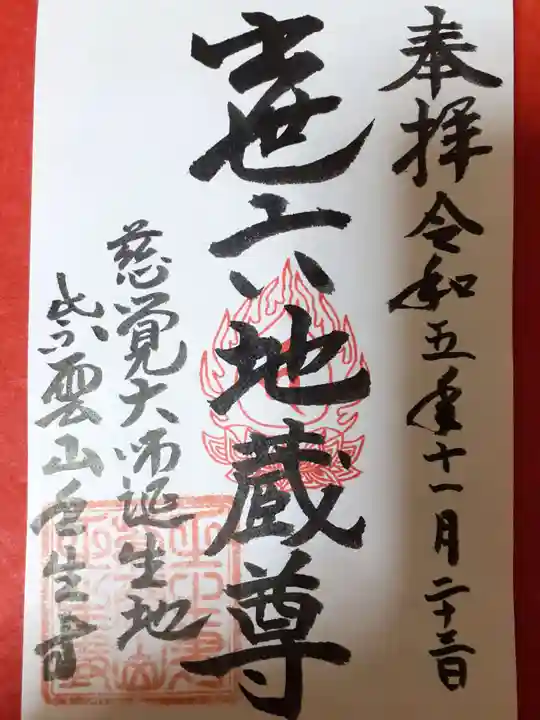 奉拝令和五年十一月二十三日
定世六地蔵尊
慈覚大师誕生地
紫雲山壬生寺